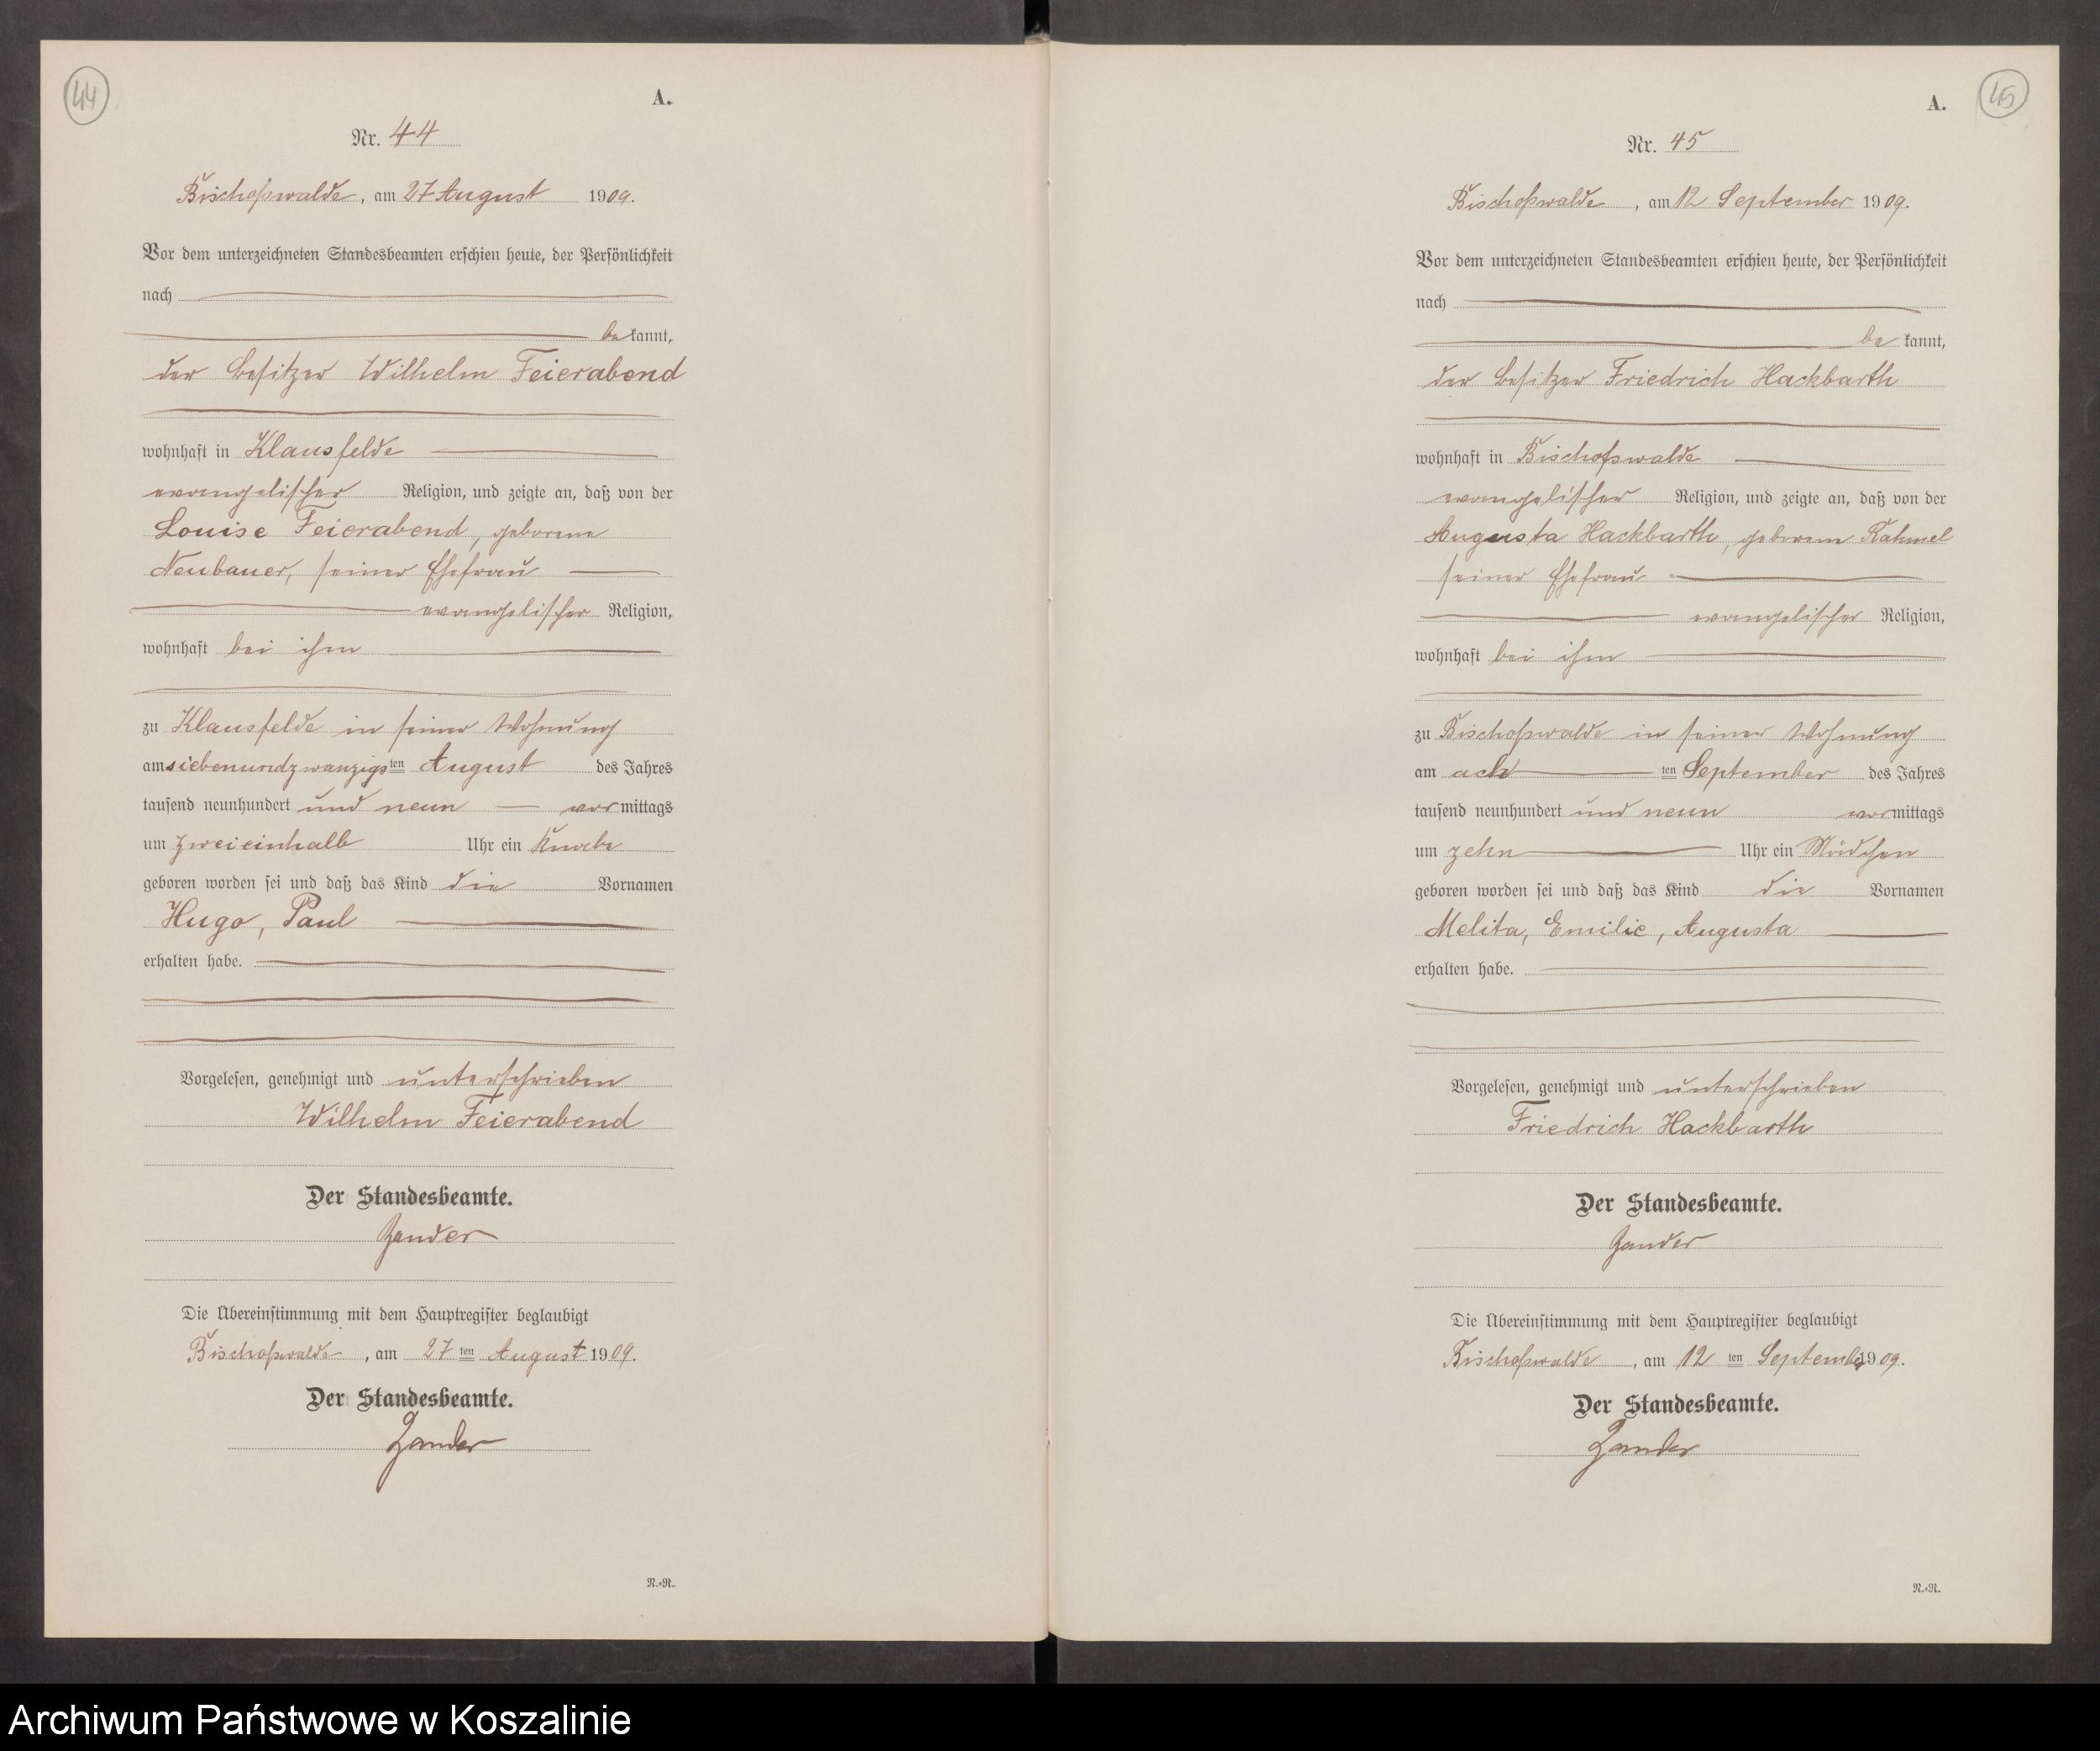 44
A.
Nr. 44
Bischofswalde, am 27 August 1909.
Vor dem unterzeichneten Standesbeamten erschien heute, der Persönlichkeit
nach
be kannt,
der Besitzer Wilhelm Feierabend
wohnhaft in Klausfelde
evangelischer Religion, und zeigte an, daß von der
Louise Feierabend, geborene
Neubauer, seiner Ehefrau
evangelischer Religion,
wohnhaft bei ihm
zu Klausfelde in seiner Wohnung
am siebenundzwanzigsten August des Jahres
tausend neunhundert und neun vormittags
um zweieinhalb Uhr ein Knabe
geboren worden sei und daß das Kind die Vornamen
Hugo, Paul
erhalten habe.
Vorgelesen, genehmigt und unterschrieben
Wilhelm Feierabend
Der Standesbeamte.
Zander
Die Übereinstimmung mit dem Hauptregister beglaubigt
Bischofswalde, am 27 ten August 1909.
Der Standesbeamte.
Zander
N.=R.
45
A.
Nr. 45
Bischofswalde, am 12 September 1909.
Vor dem unterzeichneten Standesbeamten erschien heute, der Persönlichkeit
nach
be kannt,
der Besitzer Friedrich Hackbarth
wohnhaft in Bischofswalde
evangelischer Religion, und zeigte an, daß von der
Augusta Hackbarth, geborenen Rahmel
seiner Ehefrau
evangelischer Religion,
wohnhaft bei ihm
zu Bischofswalde in seiner Wohnung
am ach ten September des Jahres
tausend neunhundert und neun vormittags
um zehn Uhr ein Mädchen
geboren worden sei und daß das Kind die Vornamen
Melita, Emilie, Augusta
erhalten habe.
Vorgelesen, genehmigt und unterschrieben
Friedrich Hackbarth
Der Standesbeamte.
Zander
Die Übereinstimmung mit dem Hauptregister beglaubigt
Bischofswalde, am 12 ten September 1909.
Der Standesbeamte.
Zander
N.=R.
Archiwum Państwowe w Koszalinie